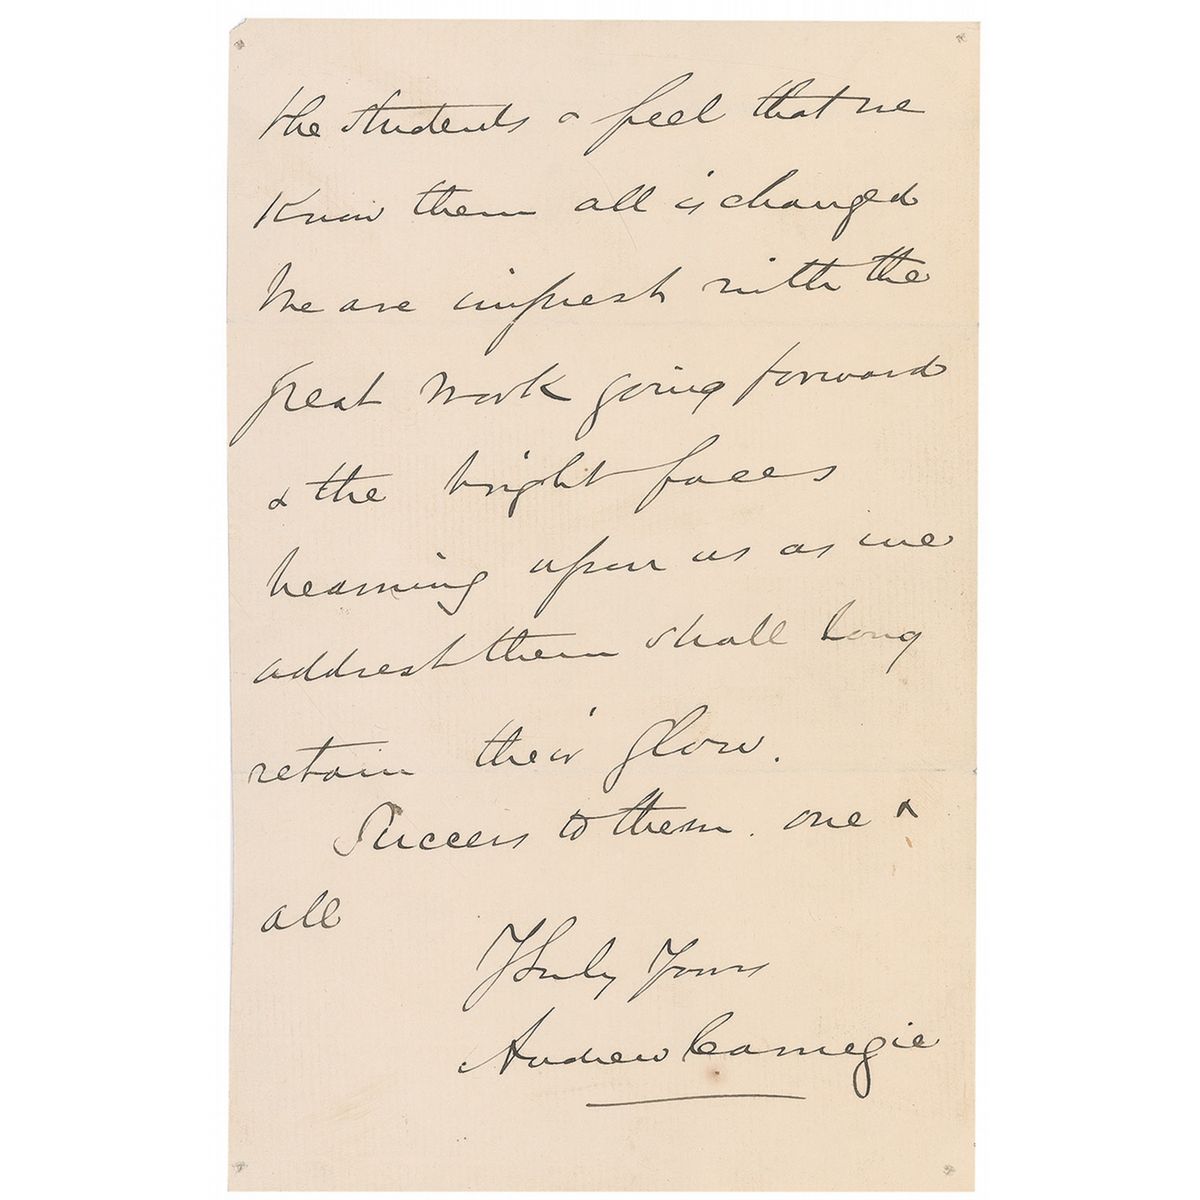 the students & feel that we
know them all is changed
We are imprest with the
great work going forward
& the bright faces
beaming upon us as we
addrest them shall long
retain their glow.
Success to them. one &
all
Truly Yours
Andrew Carnegie